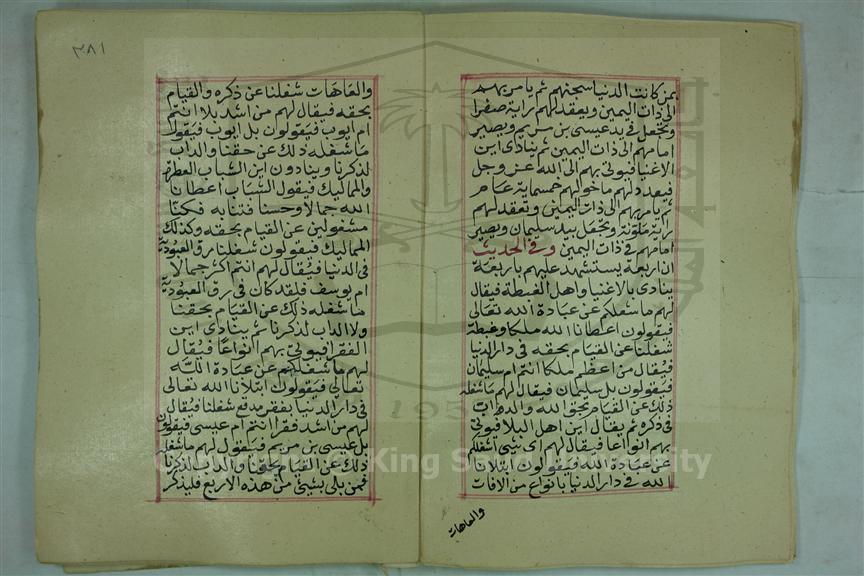 ممن كانت الدنيا سجنهم ثم يامر بهم
الى ذات اليمين ويعقد لهم راية صفرا
وتجعل في يد عيسى بن مريم ويصير
امامهم الى ذات اليمين ثم ينادى اين
الاغنيا فيوتى بهم الى الله عز وجل
فيعدد لهم ما خولهم خمسماية عام
ثم يامر بهم الى ذات اليمين وتعقد لهم
راية ملونة وتجعل بيد سليمان ويصير
امامهم في ذات اليمين وفي الحديث
ان اربعة يستشهد عليهم باربعة
ينادى بالاغنيا واهل الغبطة فيقال
لهم ما شغلكم عن عبادة الله تعالى
فيقولون اعطانا الله ملكا وغبطة
شغلنا عن القيام بحقه في دار الدنيا
فيقال من اعظم ملكا انتم ام سليمان
فيقولون بل سليمان فيقال لهم ما شغله
ذلك عن القيام بحق الله والداب
في ذكره ثم يقال اين اهل البلا فيوتى
بهم انواعا فيقال لهم اى شى اشغلكم
عن عبادة الله فيقولون ابتلانا
الله في دار الدنيا بانواع من الافات
والعاهات
٣٨١
والعاهات شغلنا عن ذكره والقيام
بحقه فيقال لهم من اشد بلا انتم
ام ايوب فيقولون بل ايوب فيقول
ما شغله ذلك عن حقنا والداب
لذكرنا وينادون اين الشباب العطرة
والمماليك فيقول الشباب اعطانا
الله جمالا وحسنا فتنا به فكنا
مشغولين عن القيام بحقه وكذلك
المماليك فيقولون شغلنا رق العبودية
في الدنيا فيقال لهم انتم اكثر جمالا
ام يوسف فلقد كان في رق العبودية
ما شغله ذلك عن القيام بحقنا
ولا الداب لذكرنا ثم ينادى اين
الفقرا فيوتى بهم انواعا فيقال
لهم ما شغلكم عن عبادة الله
تعالى فيقولون ابتلانا الله تعالى
في دار الدنيا بفقر مدقع شغلنا فيقال
لهم من اشد فقرا انتم ام عيسى فيقولون
بل عيسى بن مريم فيقول لهم ما شغله
ذلك عن القيام بحقنا والداب لذكرنا
فمن بلى بشيئ من هذه الاربع فليذكر
King Saud University